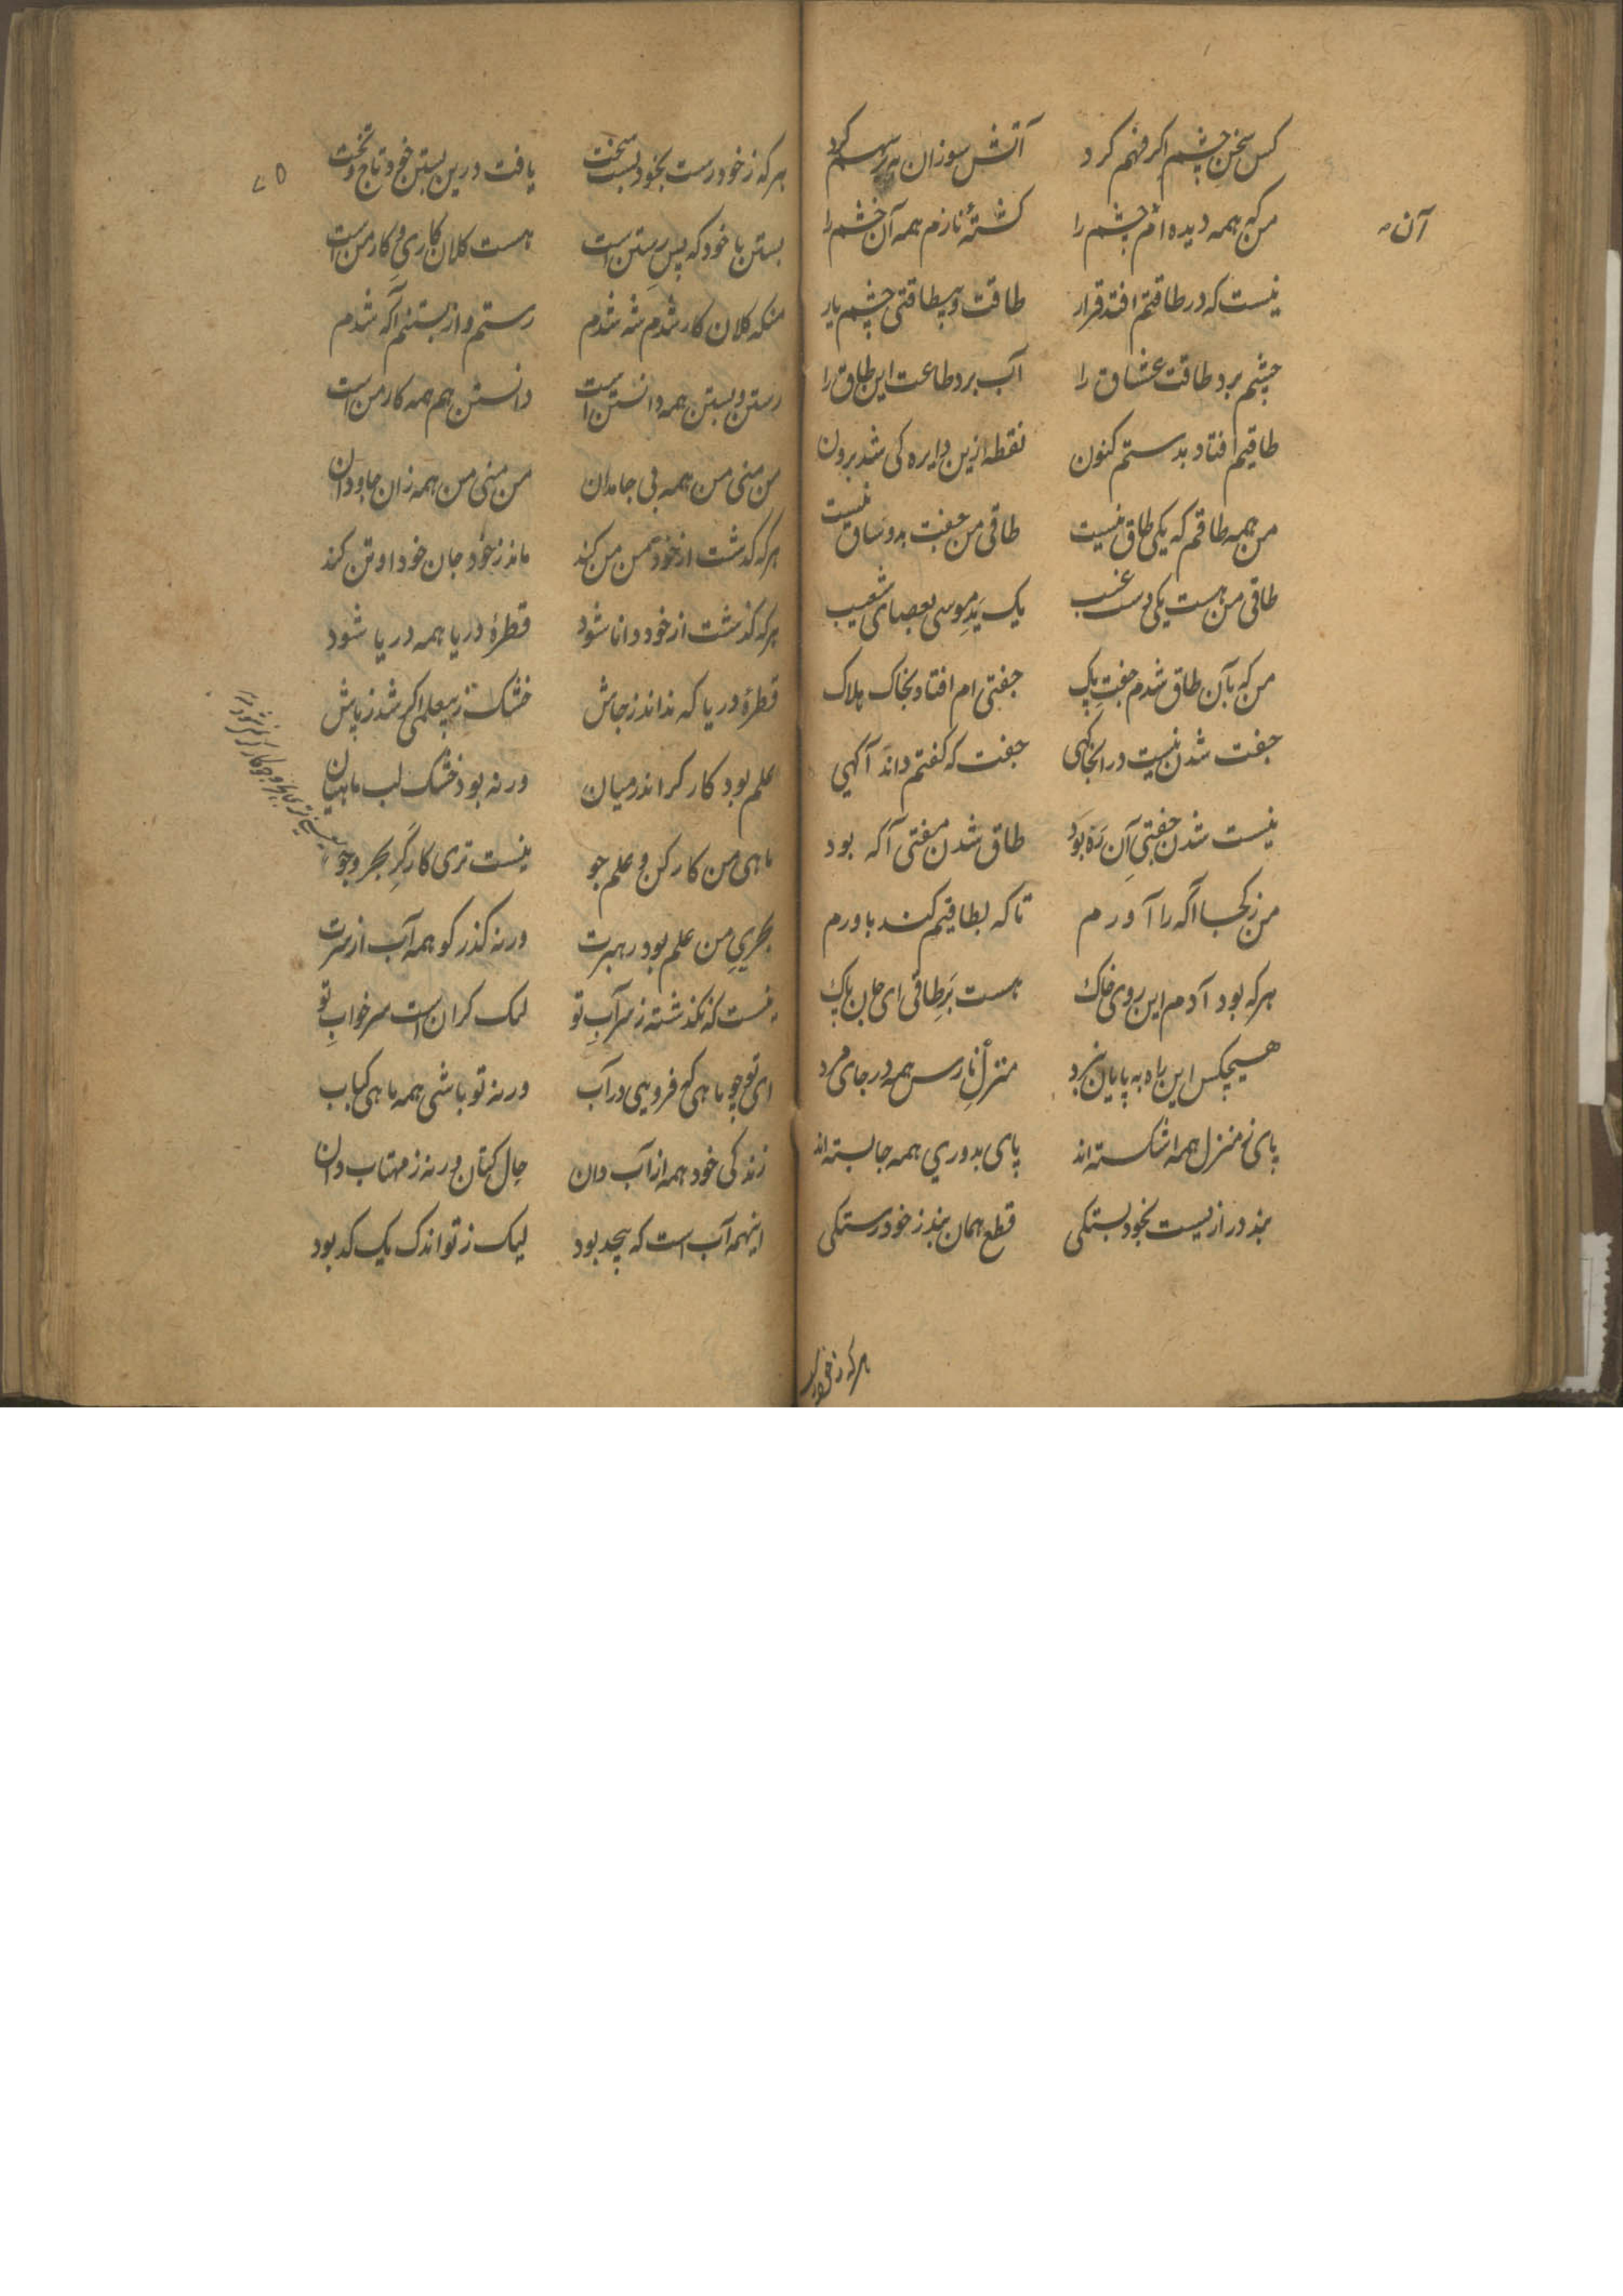 کس سخن چشم اگر فهم کرد آتش سوزان سهم کرد
من که همه دیده ام چشم را کشتهٔ نازم همه آن خشم را
آن
نیست که در طاقتم افتد قرار طاقت و بیطاقتی چشم یار
چشم برد طاقت عشاق را آب برد طاعت این طاق را
طاقیم افتاد بدستم کنون نقطه ازین دایره کی شد برون
من همه طاقم که یکی طاق نیست طاقی من جفت بدو ساق نیست
طاقی من هست یکی دست غیب یک ید موسی بعصای شعیب
من که بآن طاق شدم جفت پاک جفتی ام افتاد بخاک هلاک
جفت شدن نیست در آنجا کهی جفت که گفتم داند آگهی
نیست شدن جفتی آن ره بود طاق شدن مفتی آگه بود
من ز کجا آگه را آورم تا که بطاقیم کند باورم
هرکه بود آدم این روی خاک هست بر طاقی ای جان پاک
هیچکس این راه به پایان نبرد منزل نارس همه در جای مرد
پای منزل همه اشکسته اند پای بدوری همه جا بسته اند
بند دراز یست بخود بستگی قطع همان بند ز خود رستگی
هرکه ز خود رست
۷۵
هرکه ز خود رست بخود بست سخت یافت درین بستن خود تاج و تخت
بستن با خود که پس رستن است هست کلان کاری و کار من است
منکه کلان کار شدم شه شدم رستم و از بستنم آگه شدم
رستن و بستن همه دانستن است دانستن هم همه کار من است
من منی من همه بی جامدان من منی من همه زان جاودان
هرکه گذشت از خود من من کند ماند ز خود جان خود او تن کند
هرکه گذشت از خود دانا شود قطرهٔ دریا همه دریا شود
قطرهٔ دریا که نداند ز جاش خشک ز بیعلمی شد ز پاش
علم بود کارگر اندر میان ورنه بود خشک لب ماهیان
ماهی من کار کن و علم جو نیست تری کارگر بحر و جو
بحری من علم بود رهبرت ورنه گذر کو همه آب از سرت
نیست که نگذشته ز سر آب تو لیک گران است سر خواب تو
ای تو چو ماهی که فرویی در آب ورنه تو باشی همه ماهی کباب
زندگی خود همه از آب دان حال کتان ورنه ز مهتاب دان
اینهمه آب است که بیحد بود لیک ز تو اندک یک کد بود